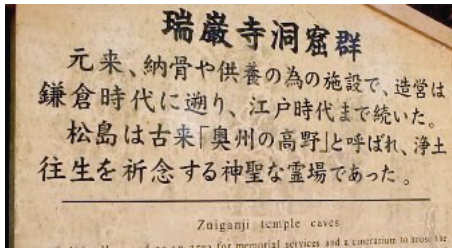 瑞巌寺洞窟群
元来、納骨や供養の為の施設で、造営は
鎌倉時代に遡り、江戸時代まで続いた。
松島は古来「奥州の高野」と呼ばれ、浄土
往生を祈念する神聖な霊場であった。
Zuiganji temple caves
for memorial services and a cinerarium to house the